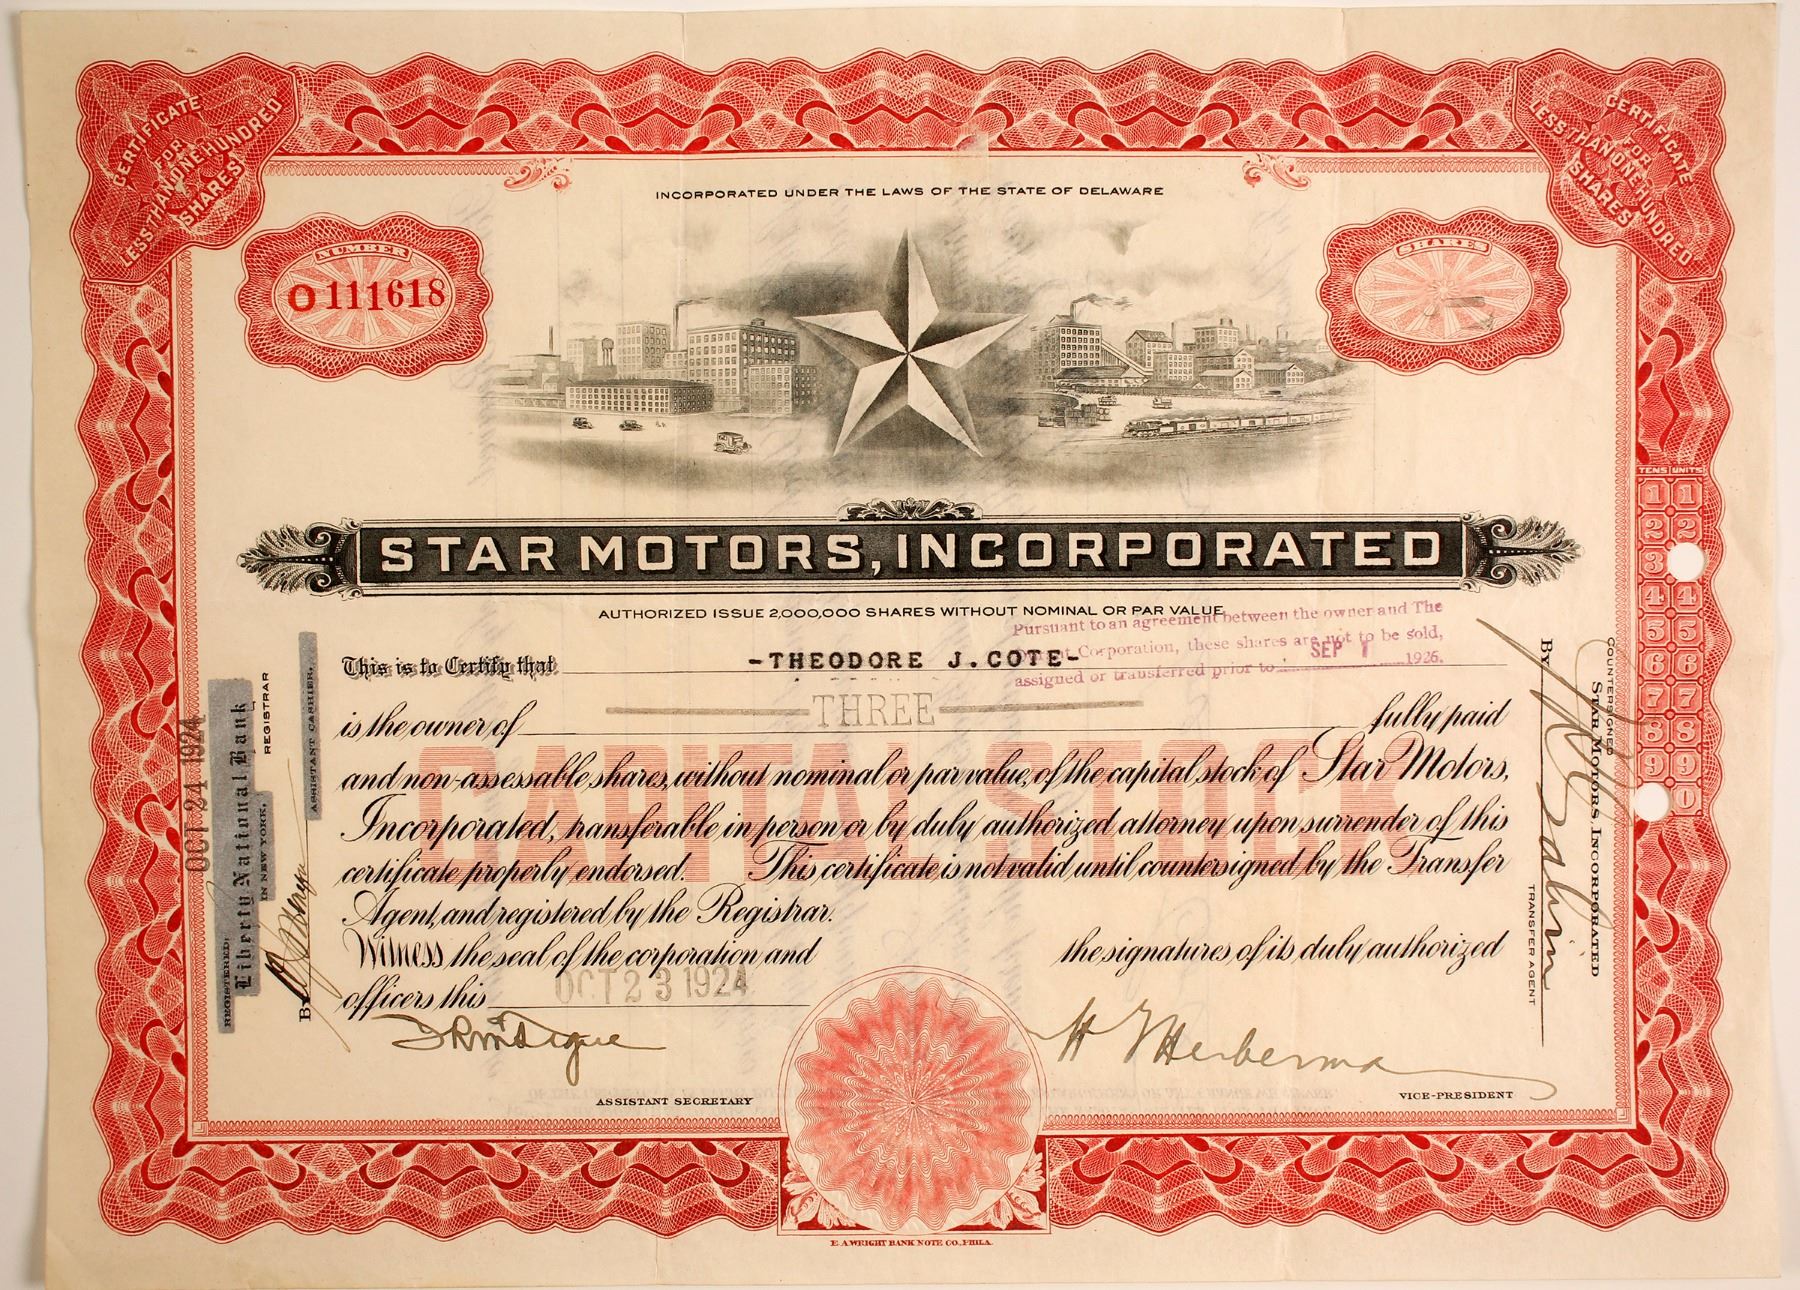 CERTIFICATE
FOR
LESS THAN ONE HUNDRED
SHARES
CERTIFICATE
FOR
LESS THAN ONE HUNDRED
SHARES
INCORPORATED UNDER THE LAWS OF THE STATE OF DELAWARE
NUMBER
O111618
SHARES
STAR MOTORS, INCORPORATED
AUTHORIZED ISSUE 2,000,000 SHARES WITHOUT NOMINAL OR PAR VALUE
Pursuant to an agreement between the owner and The
Corporation, these shares are not to be sold,
assigned or transferred prior to SEP 1 1926.
This is to Certify that -THEODORE J. COTE-
is the owner of THREE fully paid
and non-assessable shares, without nominal or par value, of the capital stock of Star Motors,
Incorporated, transferable in person or by duly authorized attorney upon surrender of this
certificate properly endorsed. This certificate is not valid until countersigned by the Transfer
Agent, and registered by the Registrar.
Witness the seal of the corporation and the signatures of its duly authorized
officers this OCT 23 1924
CAPITAL STOCK
ASSISTANT SECRETARY
VICE-PRESIDENT
E. A. WRIGHT BANK NOTE CO., PHILA.
OCT 24 1924
REGISTERED:
Liberty National Bank
IN NEW YORK,
REGISTRAR
By
ASSISTANT CASHIER.
COUNTERSIGNED
STAR MOTORS INCORPORATED
TRANSFER AGENT
By
TENS UNITS
1 1
2 2
3
4 4
5 5
6 6
7 7
8 8
9 9
0